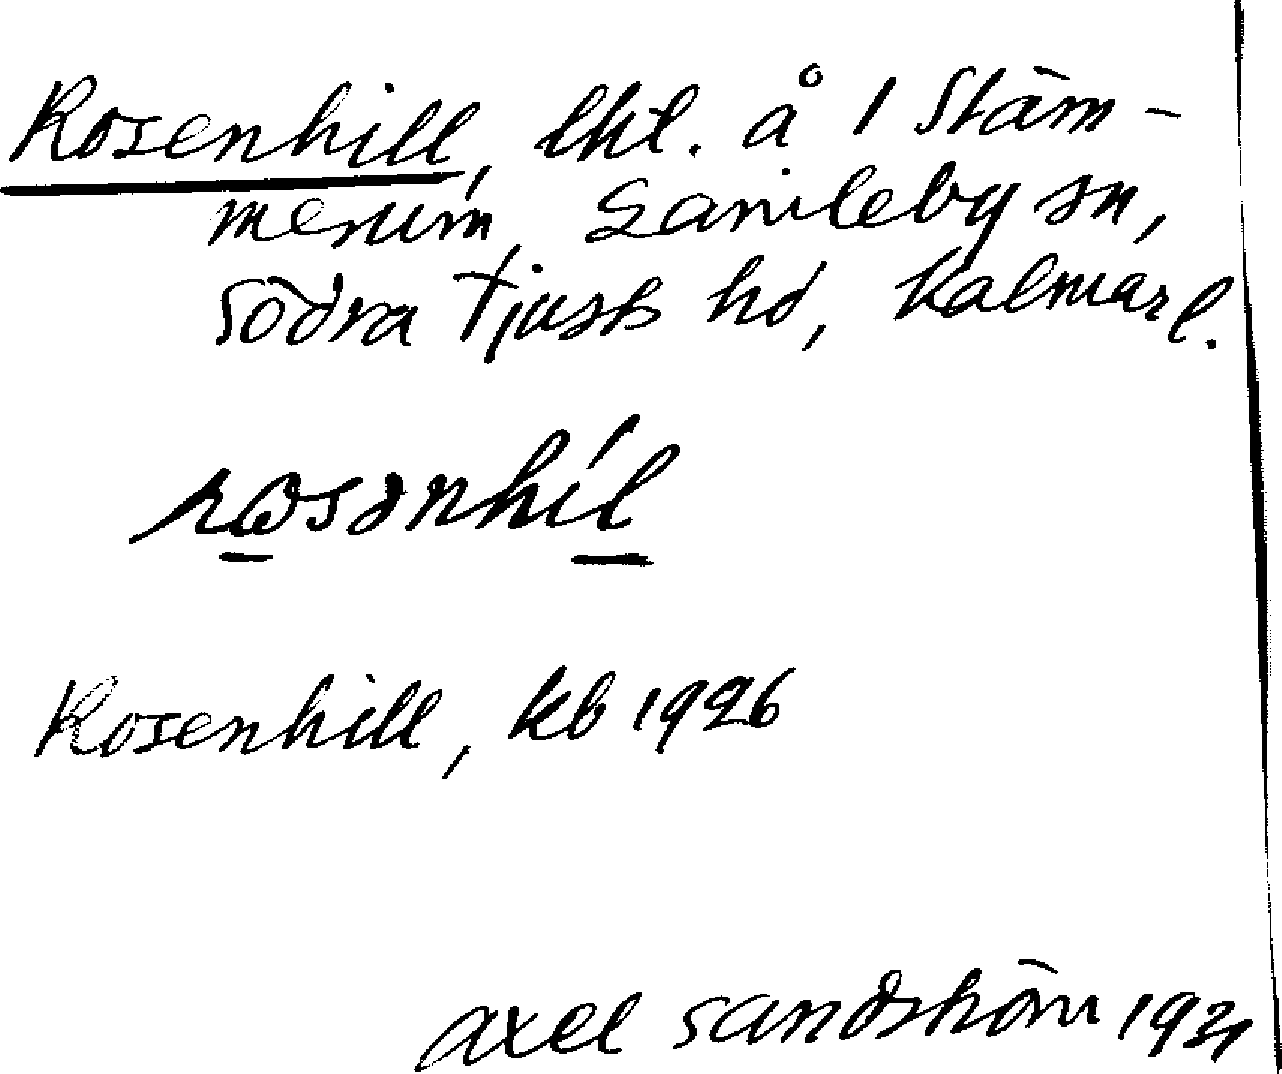 Rosenhill, lht. å 1 Stäm-
merum, Gamleby sn,
Södra Tjusts hd, Kalmar l.
rosənhíl
Rosenhill, kb 1926
Axel Sandström